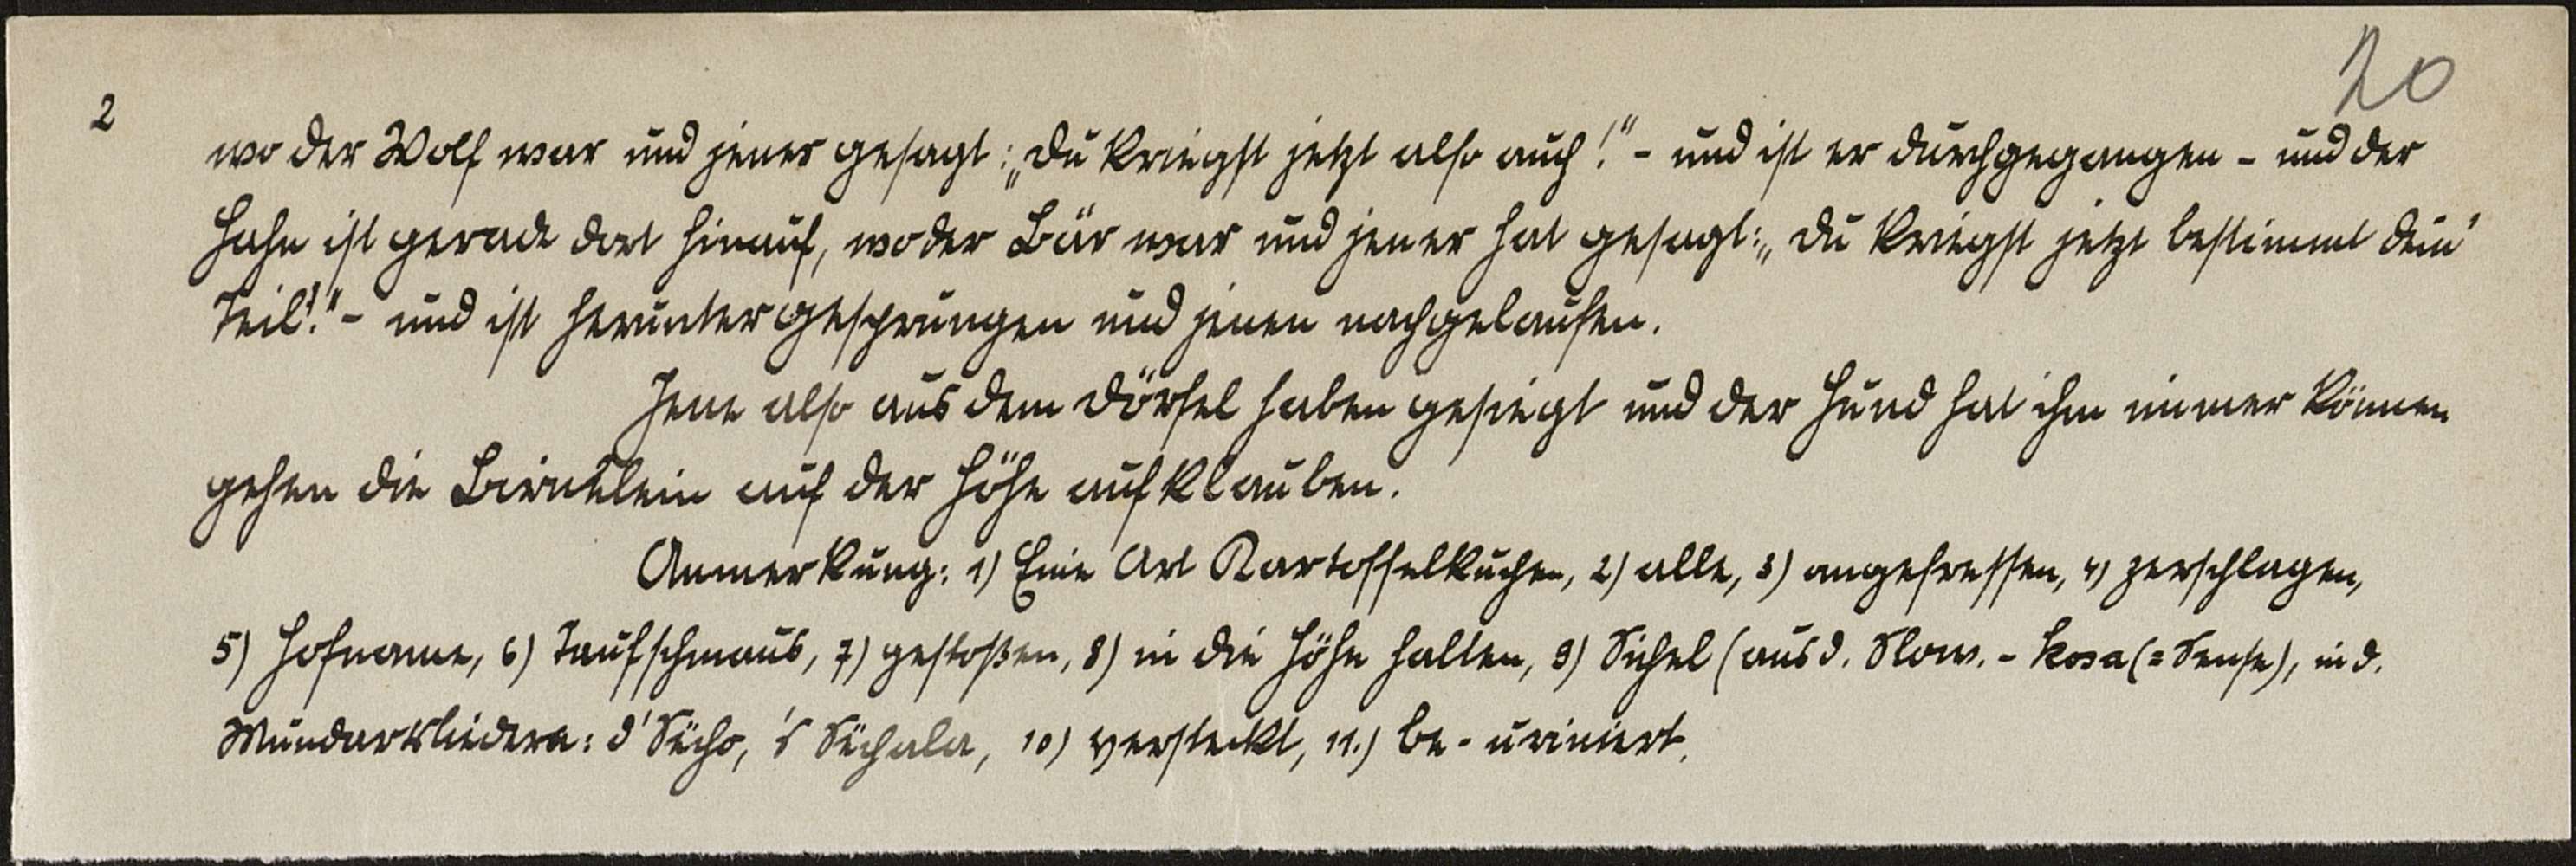 20
2
wo der Wolf war und jener gesagt: „Du kriegst jetzt also auch!“ - und ist er durchgegangen - und der
Hahn ist gerade dort hinauf, wo der Bär war und jener hat gesagt: „Du kriegst jetzt bestimmt dein'
Teil!“ - und ist heruntergesprungen und jenen nachgelaufen.
Jene also aus dem Dörfel haben gesiegt und der Hund hat ihm immer können
gehen die Birnelein auf der Höhe aufklauben.
Anmerkung: 1) Eine Art Kartoffelkuchen, 2) alle, 3) angefressen, 4) zerschlagen,
5) Hofname, 6) Taufschmaus, 7) gestoßen, 8) in die Höhe halten, 9) Sichel (aus d. Slow. - kosa (= Sense), in d.
d' , 's , 10) versteckt, 11.) be-uriniert.